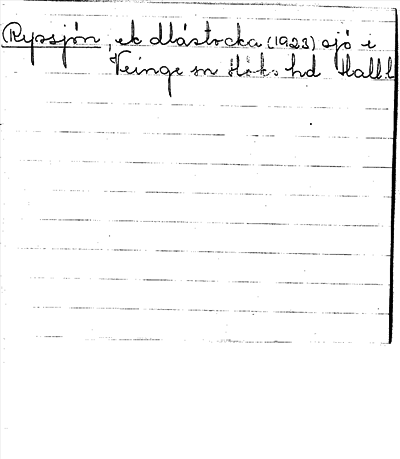 (Ryssjön, ek Mástocka (1923) sjö i
Veinge sn Hök. hd Hall